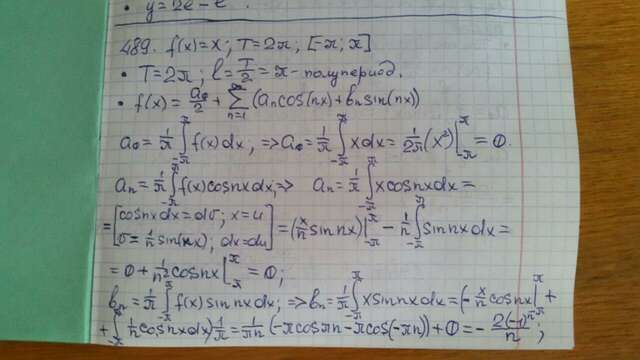 • y = 2e - e
489. f(x)=x; T=2π; [-π; π]
• T=2π; l=T/2=π - полупериод.
• f(x)=a₀/2+∑_{n=1}^{∞}(aₙcos(nx)+bₙsin(nx))
a₀=1/π ∫_{-π}^{π} f(x)dx; ⇒ a₀=1/π ∫_{-π}^{π} xdx=1/2π (x²)|_{-π}^{π}=0.
aₙ=1/π ∫_{-π}^{π} f(x)cosnxdx; ⇒ aₙ=1/π ∫_{-π}^{π} xcosnxdx=
=[cosnxdx=dv; x=u
v=1/n sin(nx); dx=du]=(x/n sinnx)|_{-π}^{π} - 1/n ∫_{-π}^{π} sinnxdx=
=0+1/n² cosnx|_{-π}^{π}=0;
bₙ=1/π ∫_{-π}^{π} f(x)sinnxdx; ⇒ bₙ=1/π ∫_{-π}^{π} xsinnxdx=(-x/n cosnx|_{-π}^{π}+
+∫_{-π}^{π} 1/n cosnxdx)1/π=1/πn (-πcosπn-πcos(-πn))+0=-2(-1)ⁿ/n;